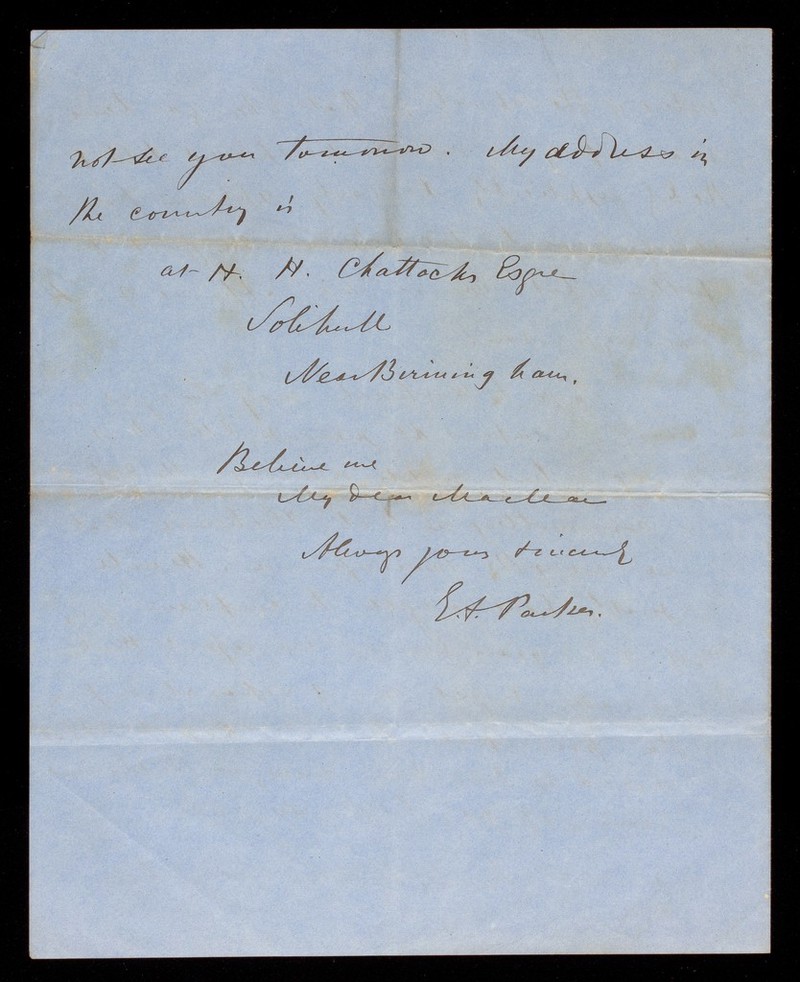 not see you tomorrow. My address in
the country is
at H. H. Chattocks Esqre
Solihull
Near Birmingham.
Believe me
My dear Maclean
Always yours sincerely
E.A. Parkes.